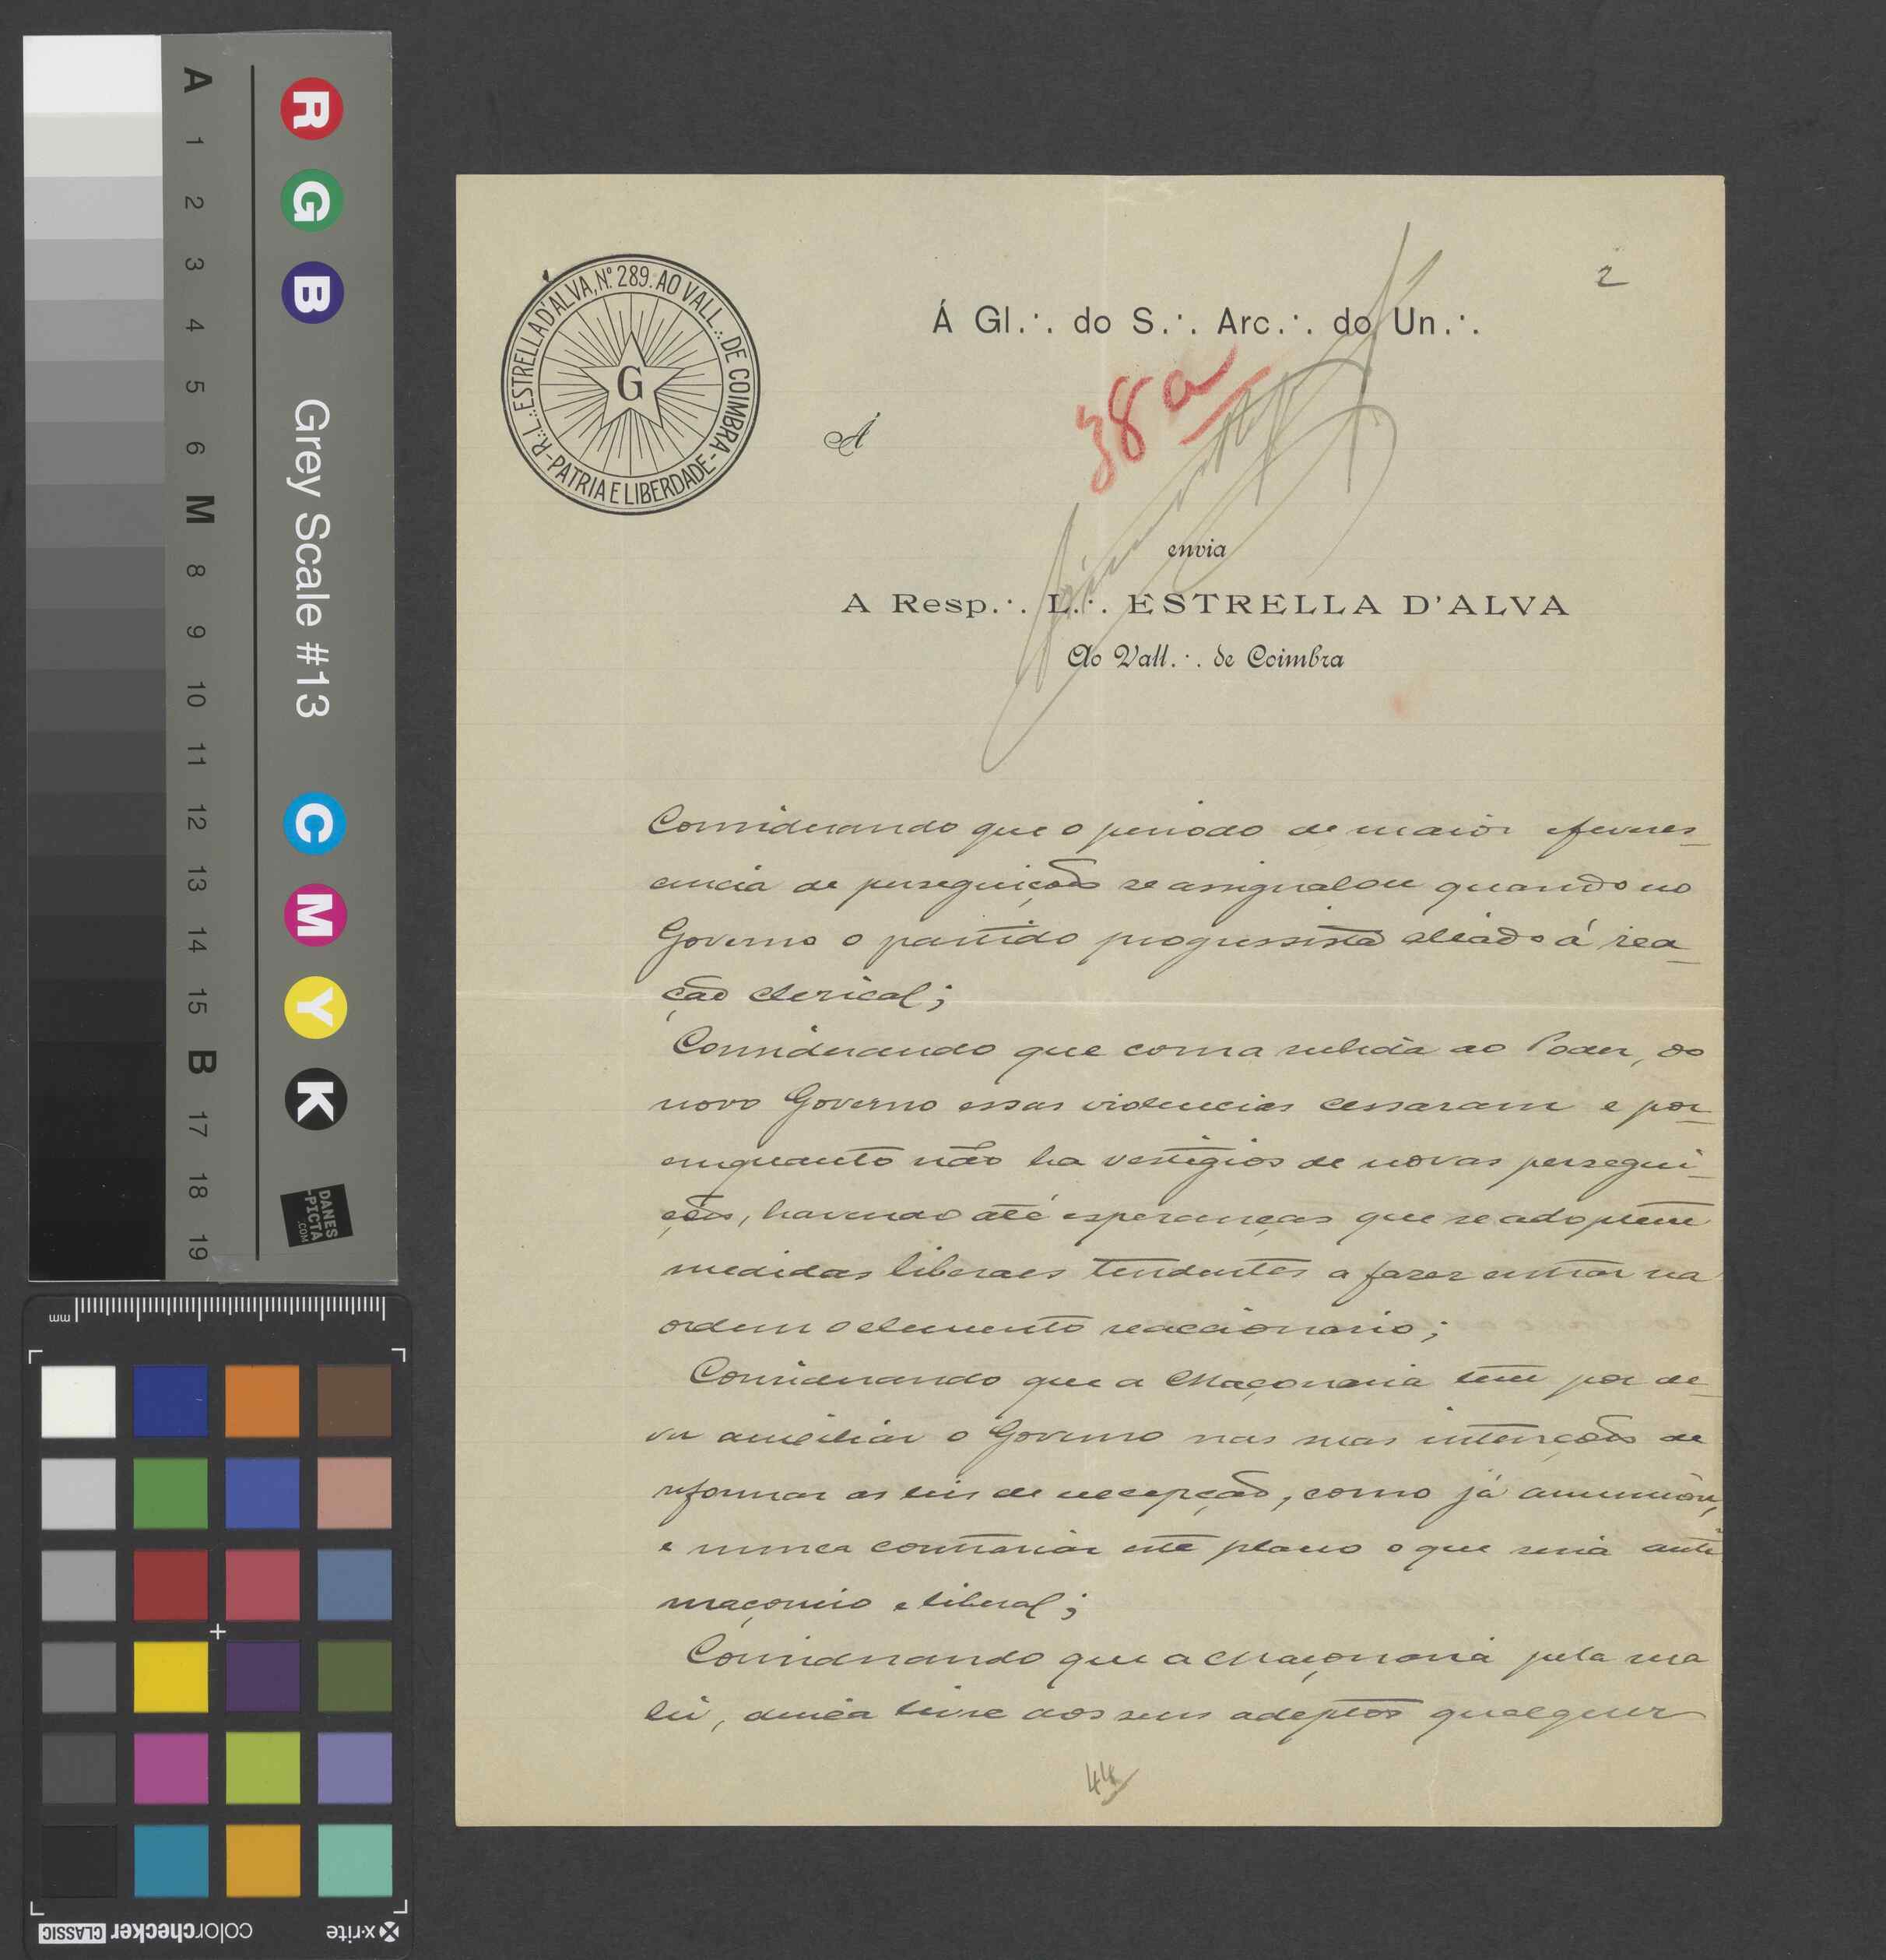 R.·.L.·.ESTRELLA D'ALVA, Nº 289. AO VALL.·. DE COIMBRA - PATRIA E LIBERDADE -
G
2
Á Gl.·. do S.·. Arc.·. do Un.·.
38a
Á
envia
A Resp.·. L.·. ESTRELLA D'ALVA
Ao Vall.·. de Coimbra
Considerando que o periodo de maior eferves-
cencia de perseguições se assignalou quando no
Governo o partido progressista aliado á rea-
ção clerical;
Considerando que com a subida ao Poder, do
novo Governo essas violencias cessaram e por-
emquanto não ha vestigios de novas persegui-
ções, havendo até esperanças que se adoptem
medidas liberaes tendentes a fazer entrar na
ordem o elemento reaccionario;
Considerando que a Maçonaria tem por de-
ver auxiliar o Governo nas suas intenções de
reformar as leis de excepção, como já anunciou,
e nunca contrariar este plano o que seria anti-
maçonico e liberal;
Considerando que a Maçonaria pela sua
lei, deixa livre aos seus adeptos qualquer
44
A 1 2 3 4 5 6 M 8 9 10 11 12 13 14 15 B 17 18 19
R G B Grey Scale #13 C M Y K
DANES
-PICTA
.COM
mm
x-rite colorchecker CLASSIC